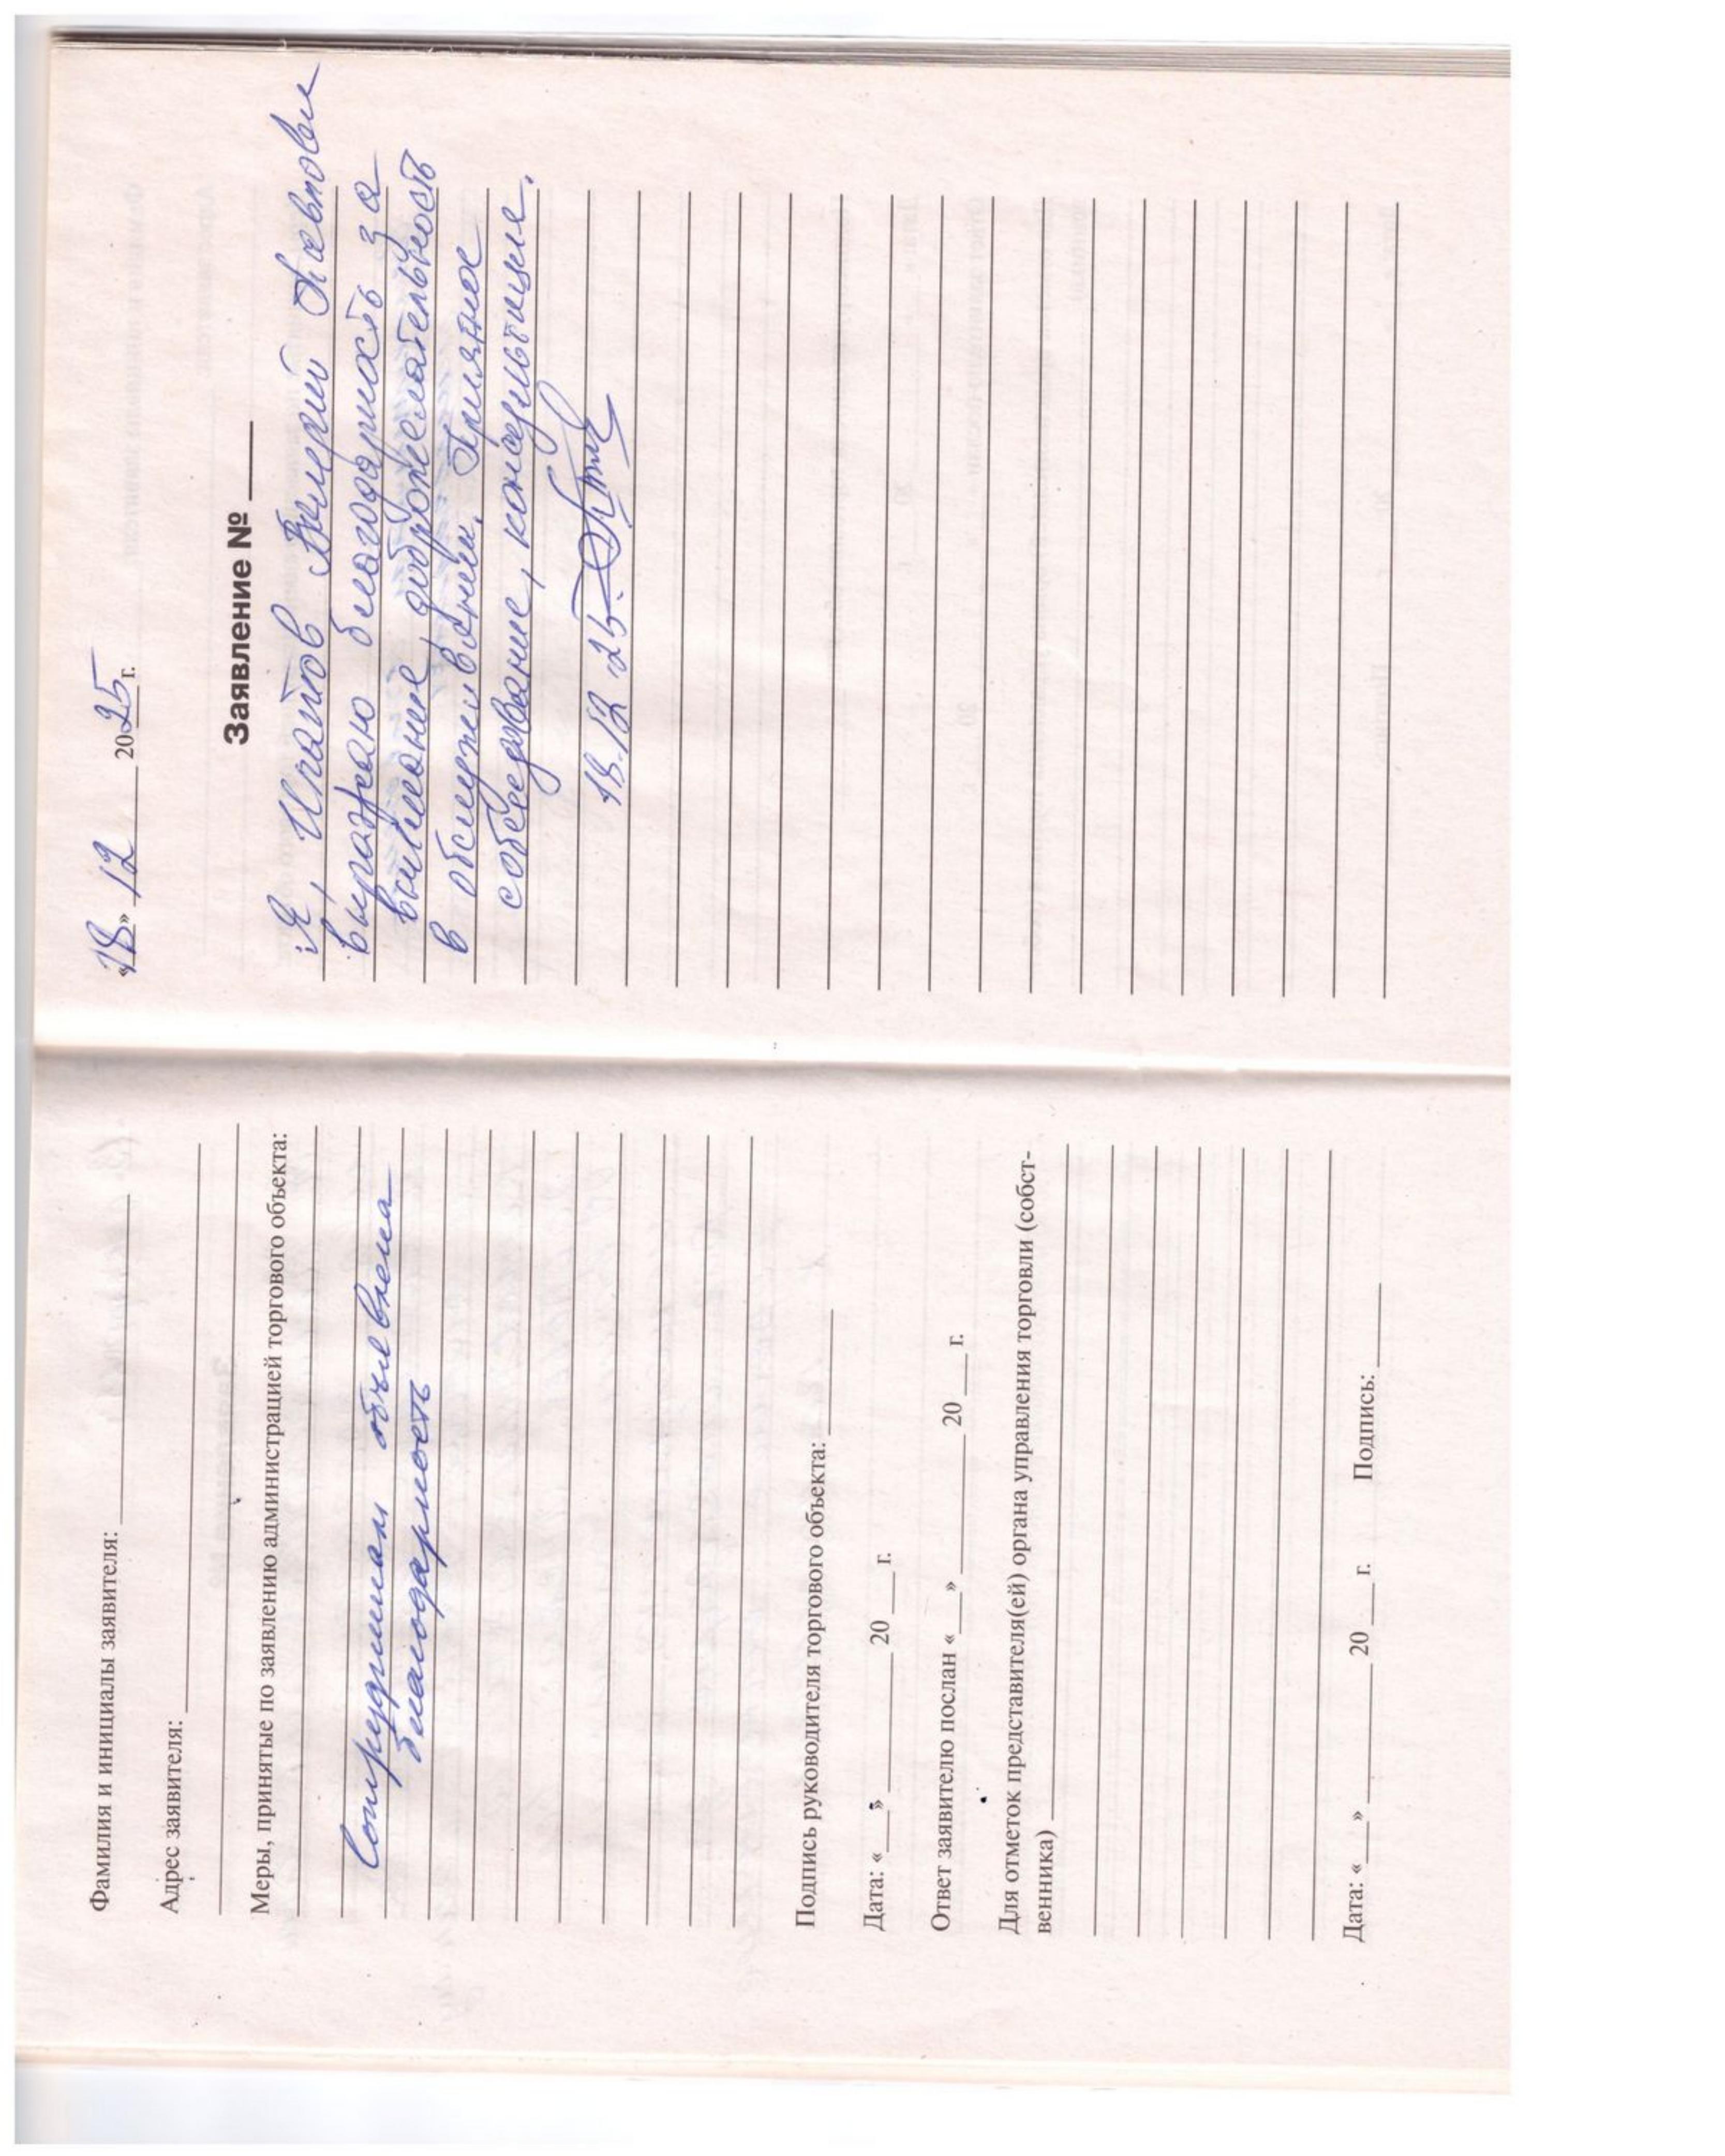 Фамилия и инициалы заявителя:
Адрес заявителя:
Меры, принятые по заявлению администрацией торгового объекта:
Сотрудникам объявлена
благодарность
Подпись руководителя торгового объекта:
Дата: «___» ______ 20 ___ г.
Ответ заявителю послан «___» ______ 20 ___ г.
Для отметок представителя(ей) органа управления торговли (собст-
венника)
Дата: «___» ______ 20 ___ г. Подпись:
«18» 12 2025 г.
Заявление № ____
Я, Валерий
выражаю благодарность за
внимание, доброжелательность
в обслуживании. Приятное
собеседование, консультации.
18.12.25